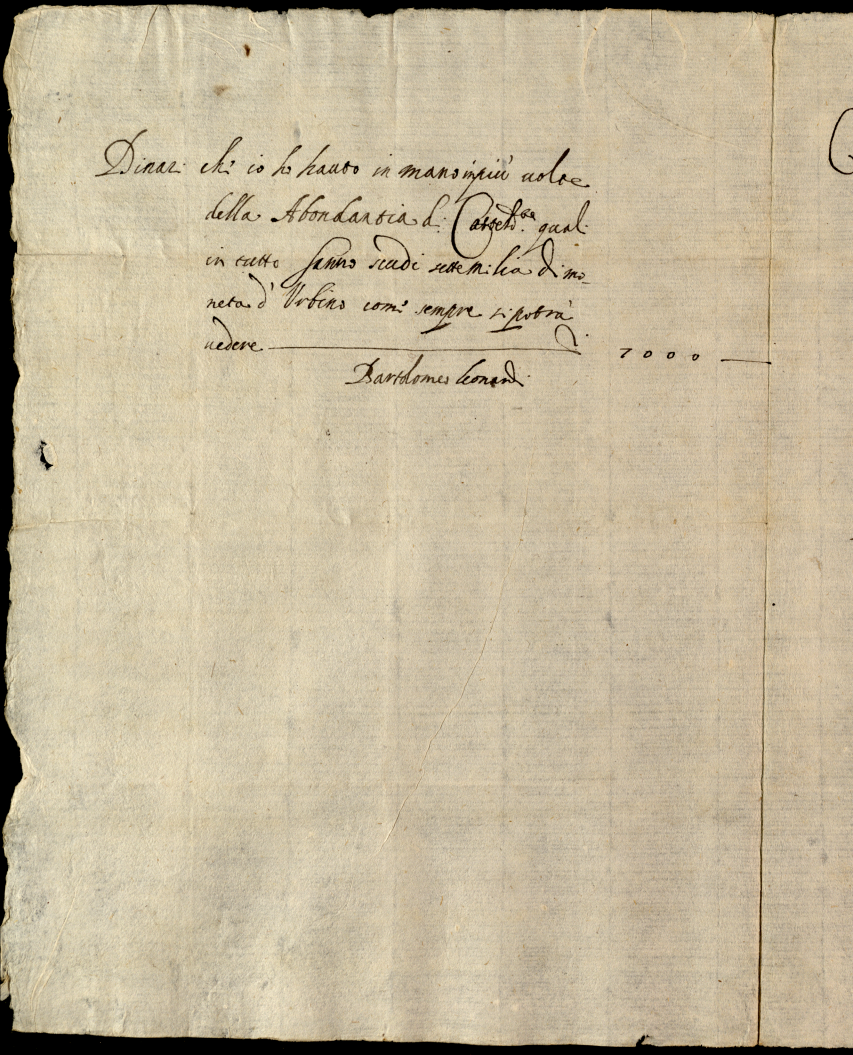 Dinari che io ho hauto in mano in piu volte
della Abondantia di quali
in tutto fanno scudi settemilia di mo-
neta d'Urbino come sempre si potrà
vedere 7000
Bartolomeo Leonardi